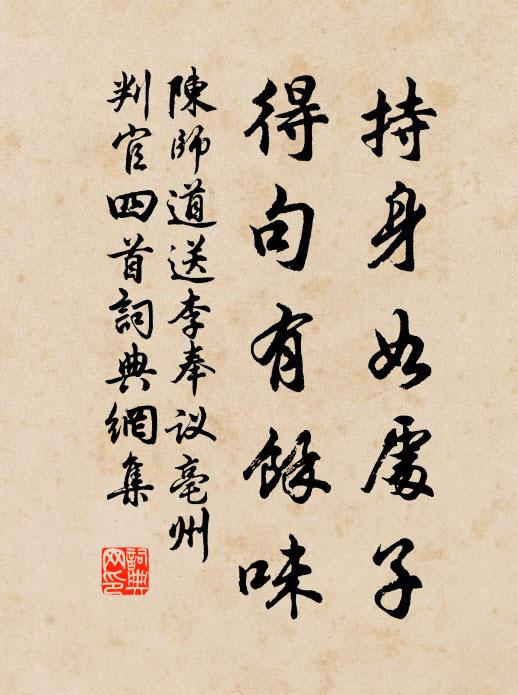 持身如處子
得句有餘味
陳師道送李奉议亳州
判官四首詞典網集
詞典网印